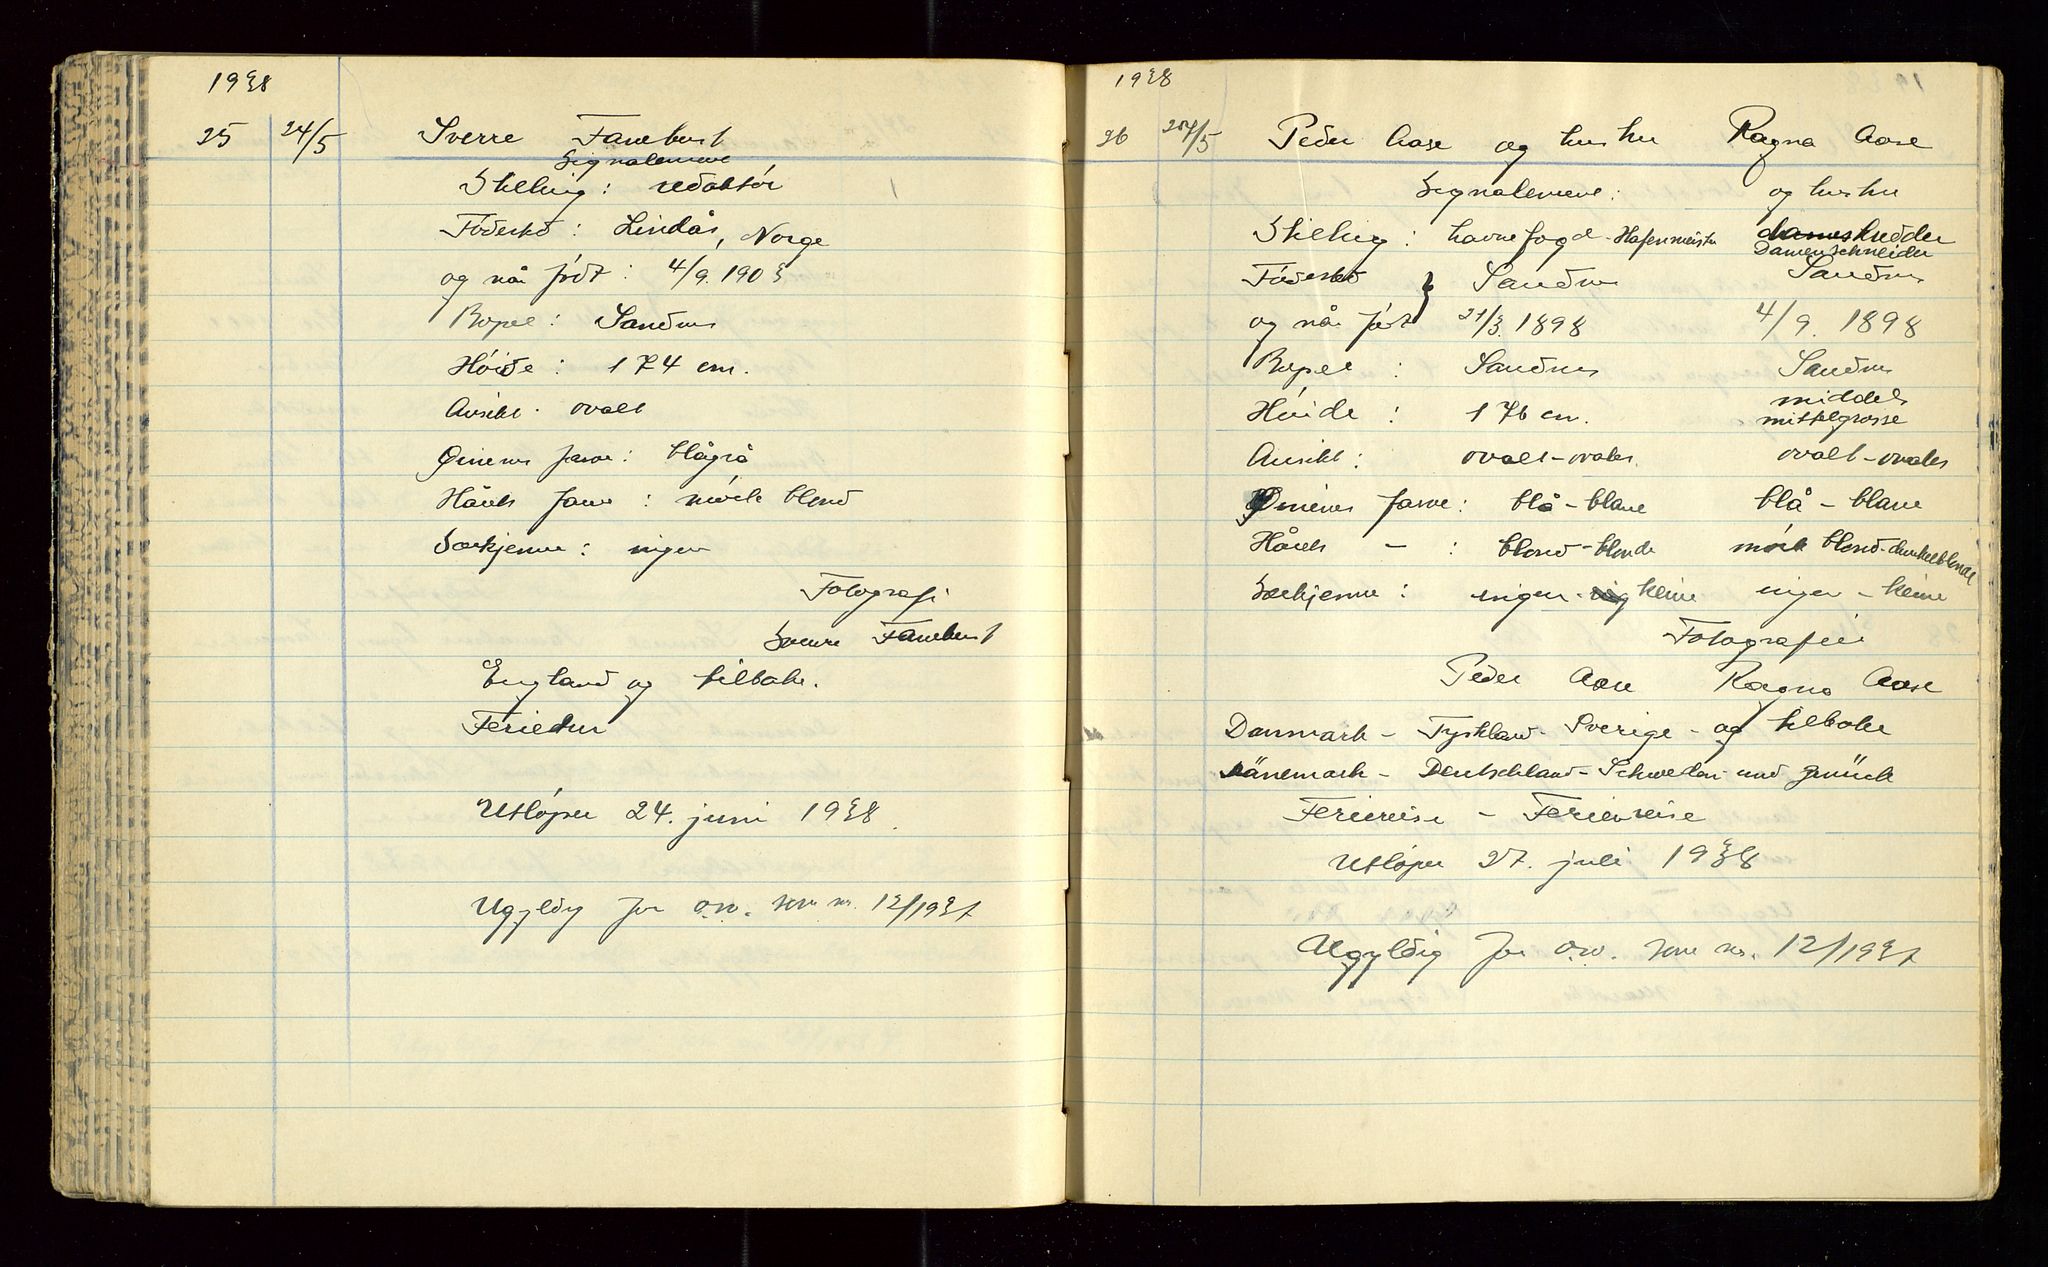 1938
25 24/5 Sverre Fanebust
Signalement
Stilling: redaktör
Födested: Lindås, Norge
og når födt: 4/9. 1903
Bopel: Sandnes
Höide: 174 cm.
Ansikt: ovalt
Öinenes farve: blågrå
Hårets farve: mörk blond
Særkjenne: ingen
Fotografi
Sverre Fanebust
England og tilbake.
Ferietur
Utlöper 24. juni 1938.
Ugyldig for o.w. som nr. 12/1937
1938
26 24/5 Peder Aase og hustru Ragna Aase
Signalement: og hustru
Stilling: havnefogd - Hafenmeister dameskredder
Damenschneider
Födested Sandnes Sandnes
og når födt 21/3. 1898 4/9. 1898
Bopel: Sandnes Sandnes
middels
Höide: 176 cm. mittelgrosse
Ansikt: ovalt - ovales ovalt - ovales
Öinenes farve: blå - blaue blå - blaue
Hårets - : blond - blonde mörk blond - dunkelblonde
Særkjenne: ingen - keine ingen - keine
Fotografier
Peder Aase Ragna Aase
Danmark - Tyskland - Sverige - og tilbake
Dänemark - Deutschland - Schweden und zurück
Feriereise - Ferienreise
Utlöper 27. juli 1938
Ugyldig for o.w. som nr. 12/1937